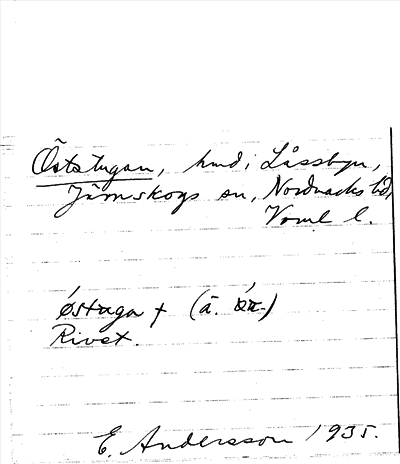 Öststugan, hmd i Låssbyn,
Järnskogs sn, Nordmarks hd,
Vrml l.
østuga + (ä. œ́-)
Rivet.
E. Andersson 1935.